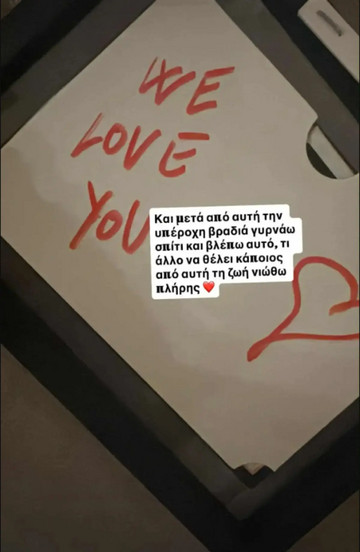 WE
LOVE
YOU
Και μετά από αυτή την
υπέροχη βραδιά γυρνάω
σπίτι και βλέπω αυτό, τι
άλλο να θέλει κάποιος
από αυτή τη ζωή νιώθω
πλήρης ❤️